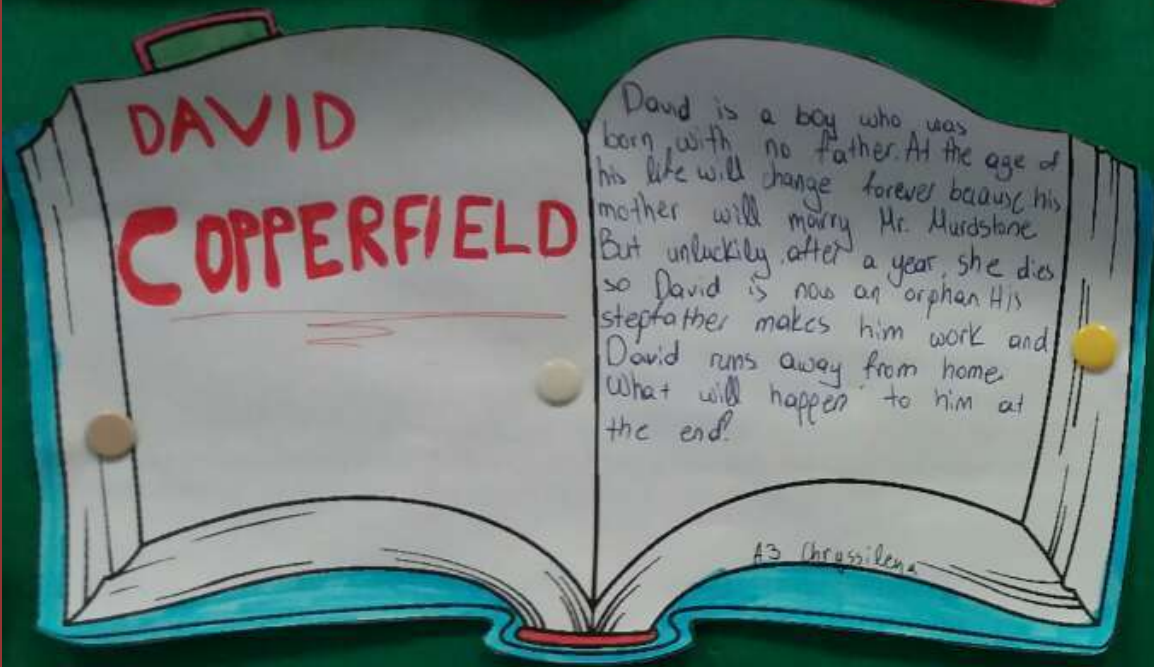 DAVID
COPPERFIELD
David is a boy who was
born with no father. At the age of
his life will change forever because his
mother will marry Mr. Murdstone
But unluckily after a year, she dies
so David is now an orphan His
stepfather makes him work and
David runs away from home
What will happen to him at
the end?
A3 Chryssilena